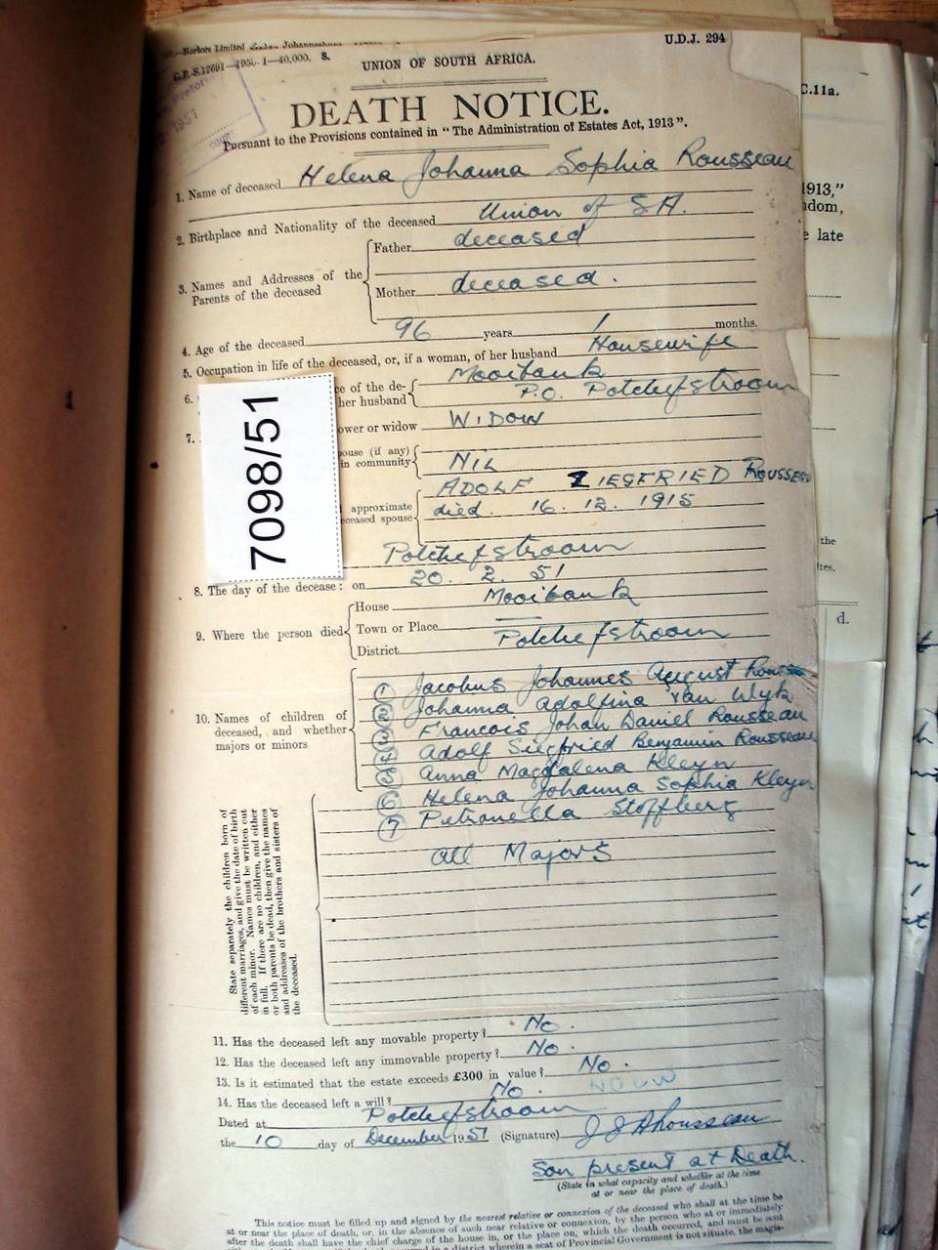 U.D.J. 294
UNION OF SOUTH AFRICA.
DEATH NOTICE.
Pursuant to the Provisions contained in "The Administration of Estates Act, 1913".
1. Name of deceased Helena Johanna Sophia Rousseau
2. Birthplace and Nationality of the deceased Union of S.A.
3. Names and Addresses of the Parents of the deceased
Father deceased
Mother deceased.
4. Age of the deceased 96 years 1 months.
5. Occupation in life of the deceased, or, if a woman, of her husband Housewife
6. ce of the de- Mooibank
her husband P.O. Potchefstroom
7. ower or widow WIDOW
ouse (if any)
in community NIL
ADOLF ZIEGFRIED ROUSSEAU
approximate died. 16. 12. 1915
ceased spouse
Potchefstroom
8. The day of the decease: on 20. 2. 51
9. Where the person died
House Mooibank
Town or Place
District Potchefstroom
10. Names of children of deceased, and whether majors or minors
① Jacobus Johannes August Rouss
② Johanna Adolfina Van Wyk
③ Francois Johan Daniel Rousseau
④ Adolf Siegfried Benjamin Rousseau
⑤ Anna Magdalena Kleyn
⑥ Helena Johanna Sophia Kleyn
⑦ Petronella Stoffberg
All Majors
State separately the children born of
different marriages, and give the date of birth
of each minor. Names must be written out
in full. If there are no children, and either
or both parents be dead, then give the names
and addresses of the brothers and sisters of
the deceased.
11. Has the deceased left any movable property? No.
12. Has the deceased left any immovable property? No.
13. Is it estimated that the estate exceeds £300 in value? No.
14. Has the deceased left a will? No.
Dated at Potchefstroom
the 10 day of December 1951 (Signature) J J A Rousseau
Son present at Death.
(State in what capacity and whether at the time
at or near the place of death.)
This notice must be filled up and signed by the nearest relative or connexion of the deceased who shall at the time be
at or near the place of death, or, in the absence of such near relative or connexion, by the person who at or immediately
after the death shall have the chief charge of the house in, or the place on, which the death occurred, and must be sent
7098/51
C.11a.
1913,"
ndom,
e late
the
d.